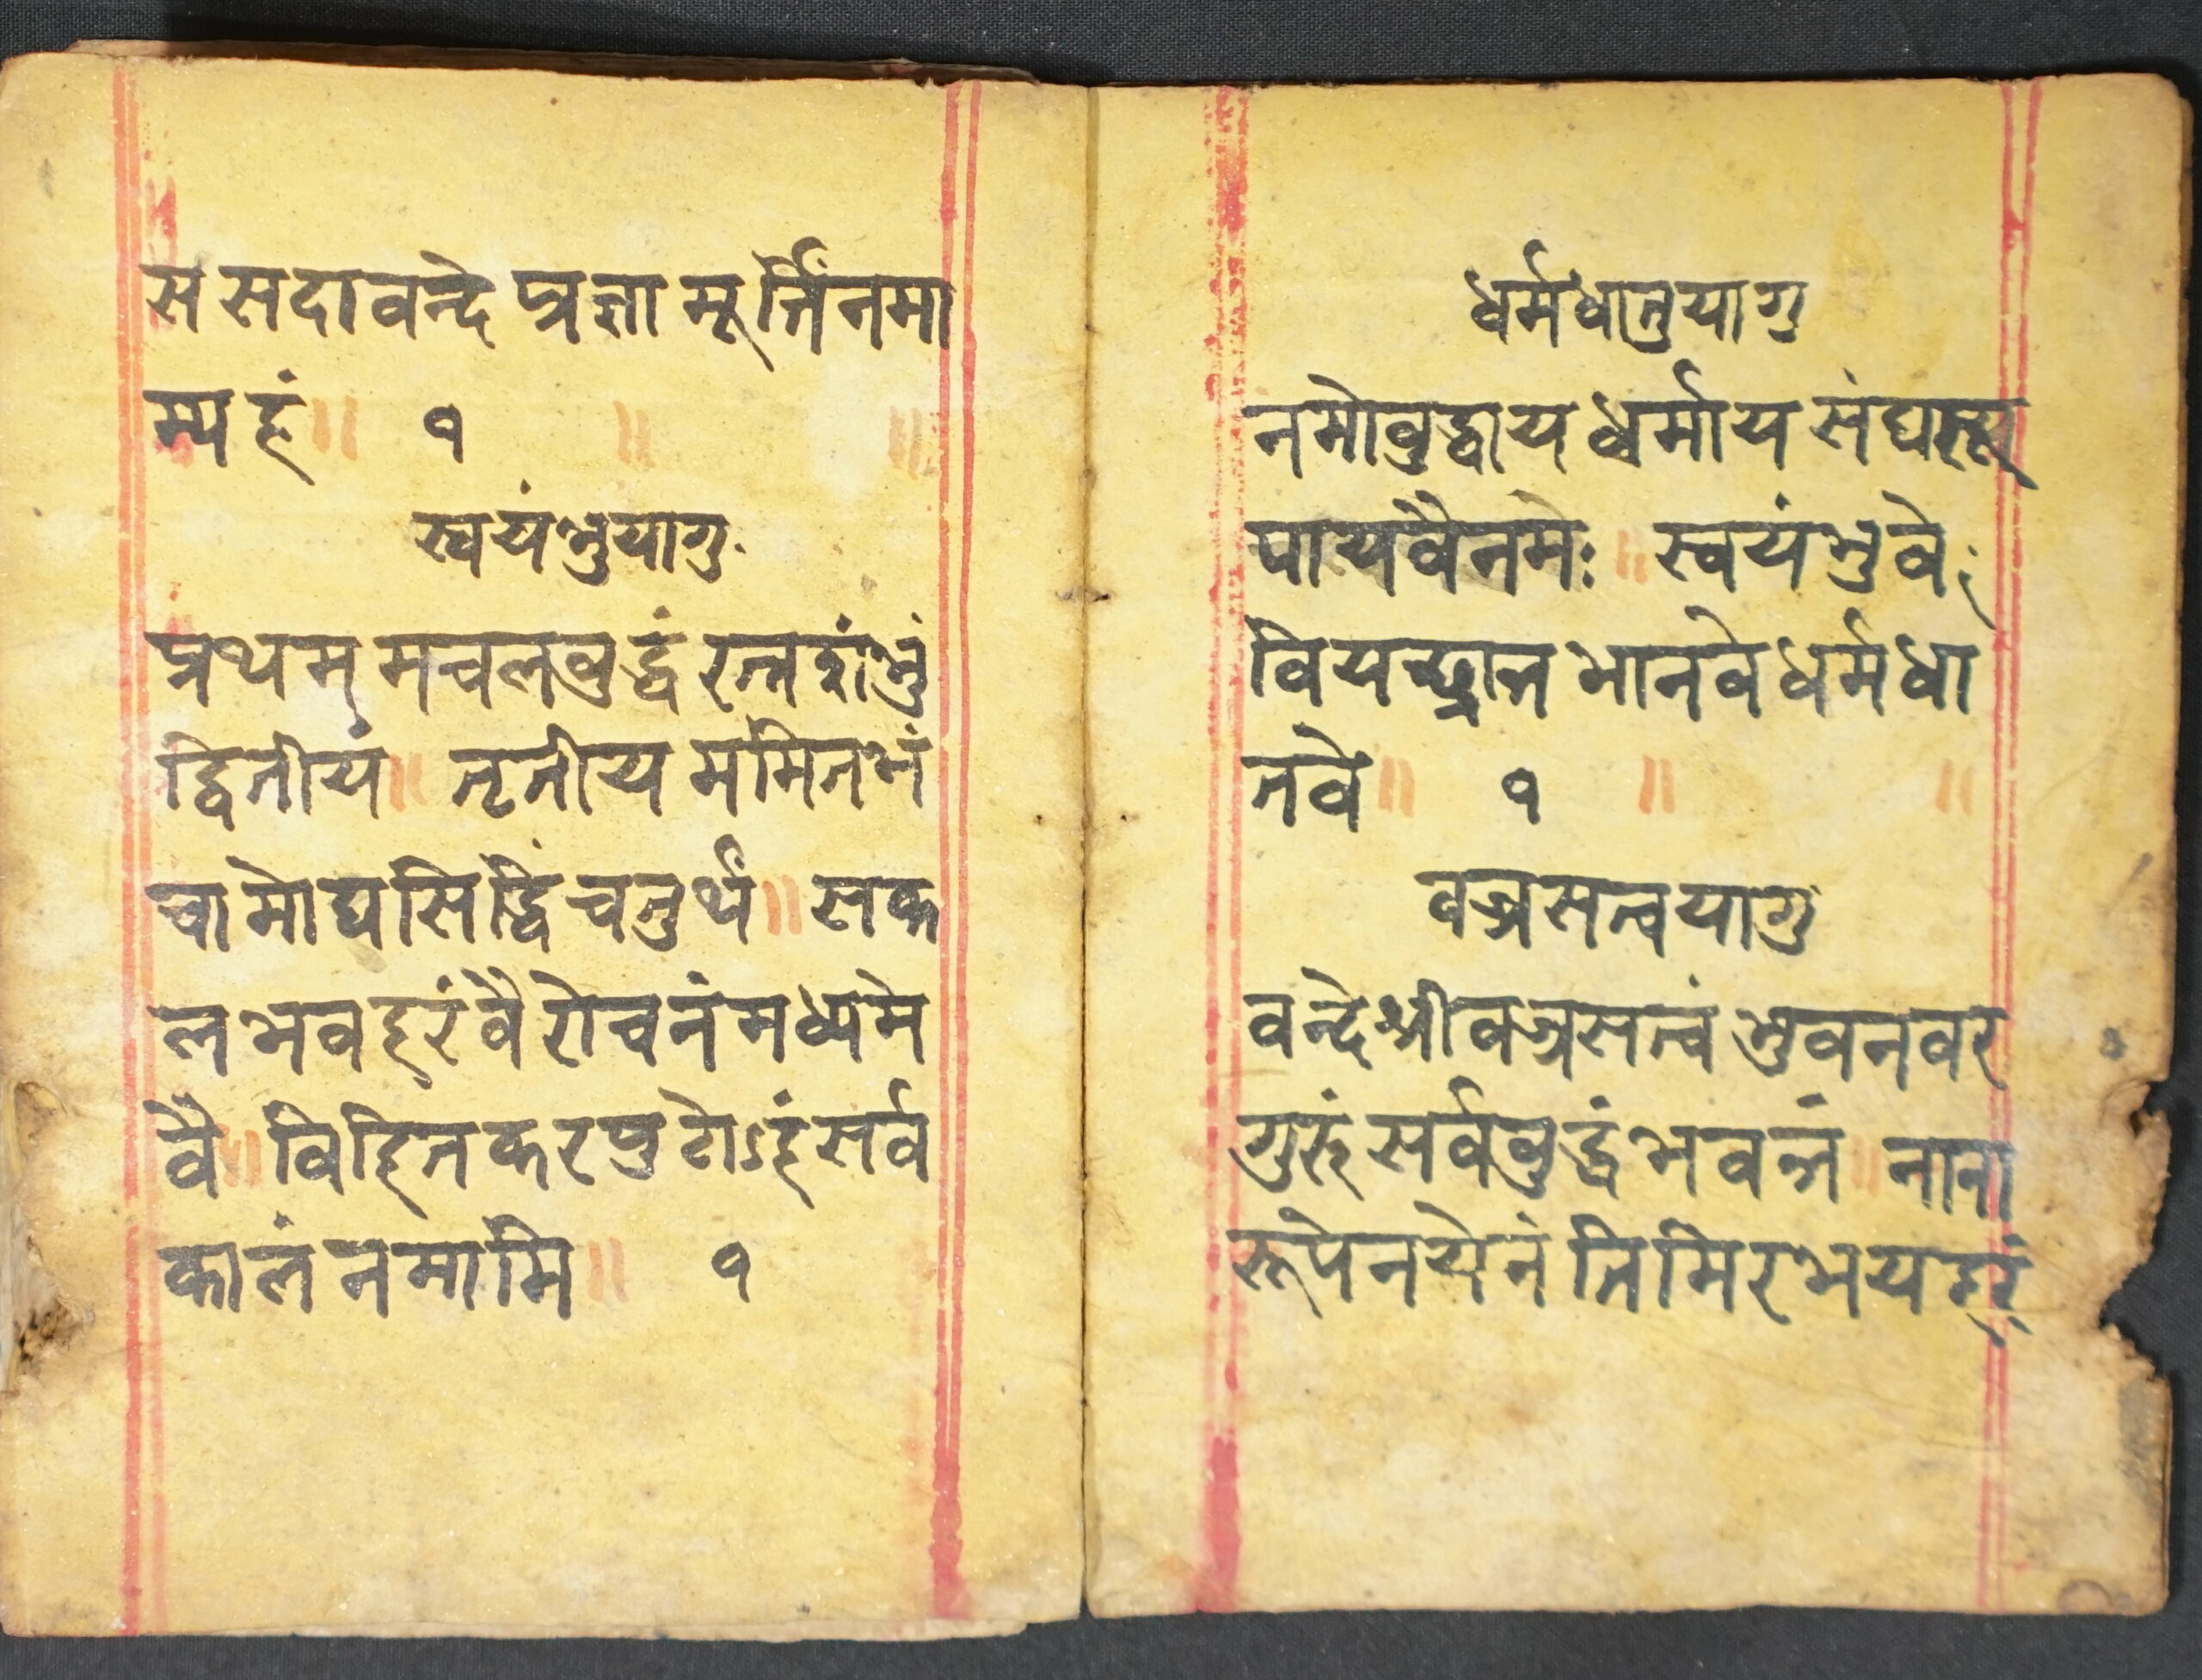 स सदा वन्दे प्रज्ञा मूर्त्तिं नमा
म्यहं ॥ १ ॥ ॥
स्वयंभुयागु
प्रथम् मचलवुद्धं रत्नशंभुं
द्वितीयं ॥ तृतीय ममितभं
चामोघसिद्धिं चतुर्थं ॥ सक
ल भव हरं वैरोचनं मध्यमे
वै ॥ विहित करपुटोऽहं सर्व
कालं नमामि ॥ १
धर्मधातुयागु
नमो वुद्धाय धर्माय संघरू
पाय वै नमेः ॥ स्वयंभुवे
वियच्छान्त भानवे धर्मधा
तवे ॥ १ ॥ ॥
वज्रसत्वयागु
वन्दे श्रीवज्रसत्वं भुवनवर
गुरुं सर्ववुद्धं भवन्तं ॥ नाना
रूपे नयेनं तिमिर भयहरं